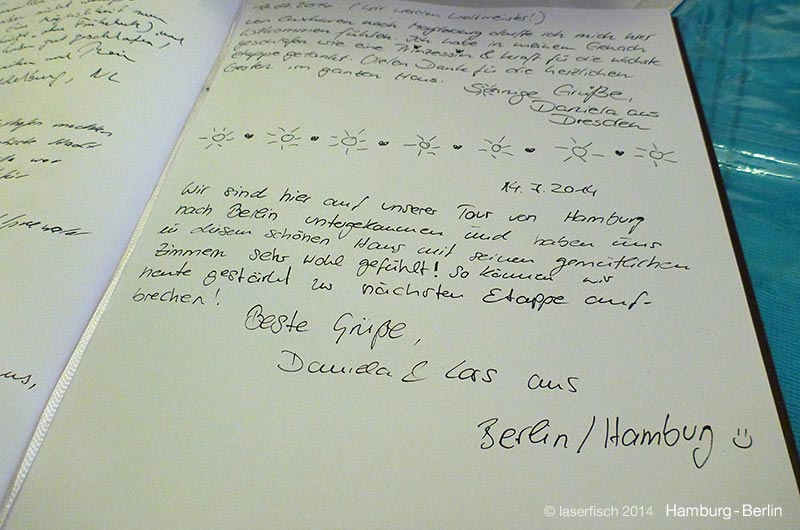 NL
us,
.07.2014 (Wir werden Weltmeister!)
Von Cuxhaven nach Magdeburg durfte ich mich hier
Willkommen fühlen. Ich habe in meinem Gemach
geschlafen wie eine Prinzessin & Kraft für die nächste
Etappe getankt. Vielen Dank für die herzlichen
Gesten im ganzen Haus.
Sonnige Grüße,
Daniela aus
Dresden
14.7.2014
Wir sind hier auf unserer Tour von Hamburg
nach Berlin untergekommen und haben uns
in diesem schönen Haus mit seinen gemütlichen
Zimmern sehr wohl gefühlt! So können wir
heute gestärkt zur nächsten Etappe auf-
brechen!
Beste Grüße,
Daniela & Lars aus
Berlin/Hamburg
© laserfisch 2014 Hamburg - Berlin